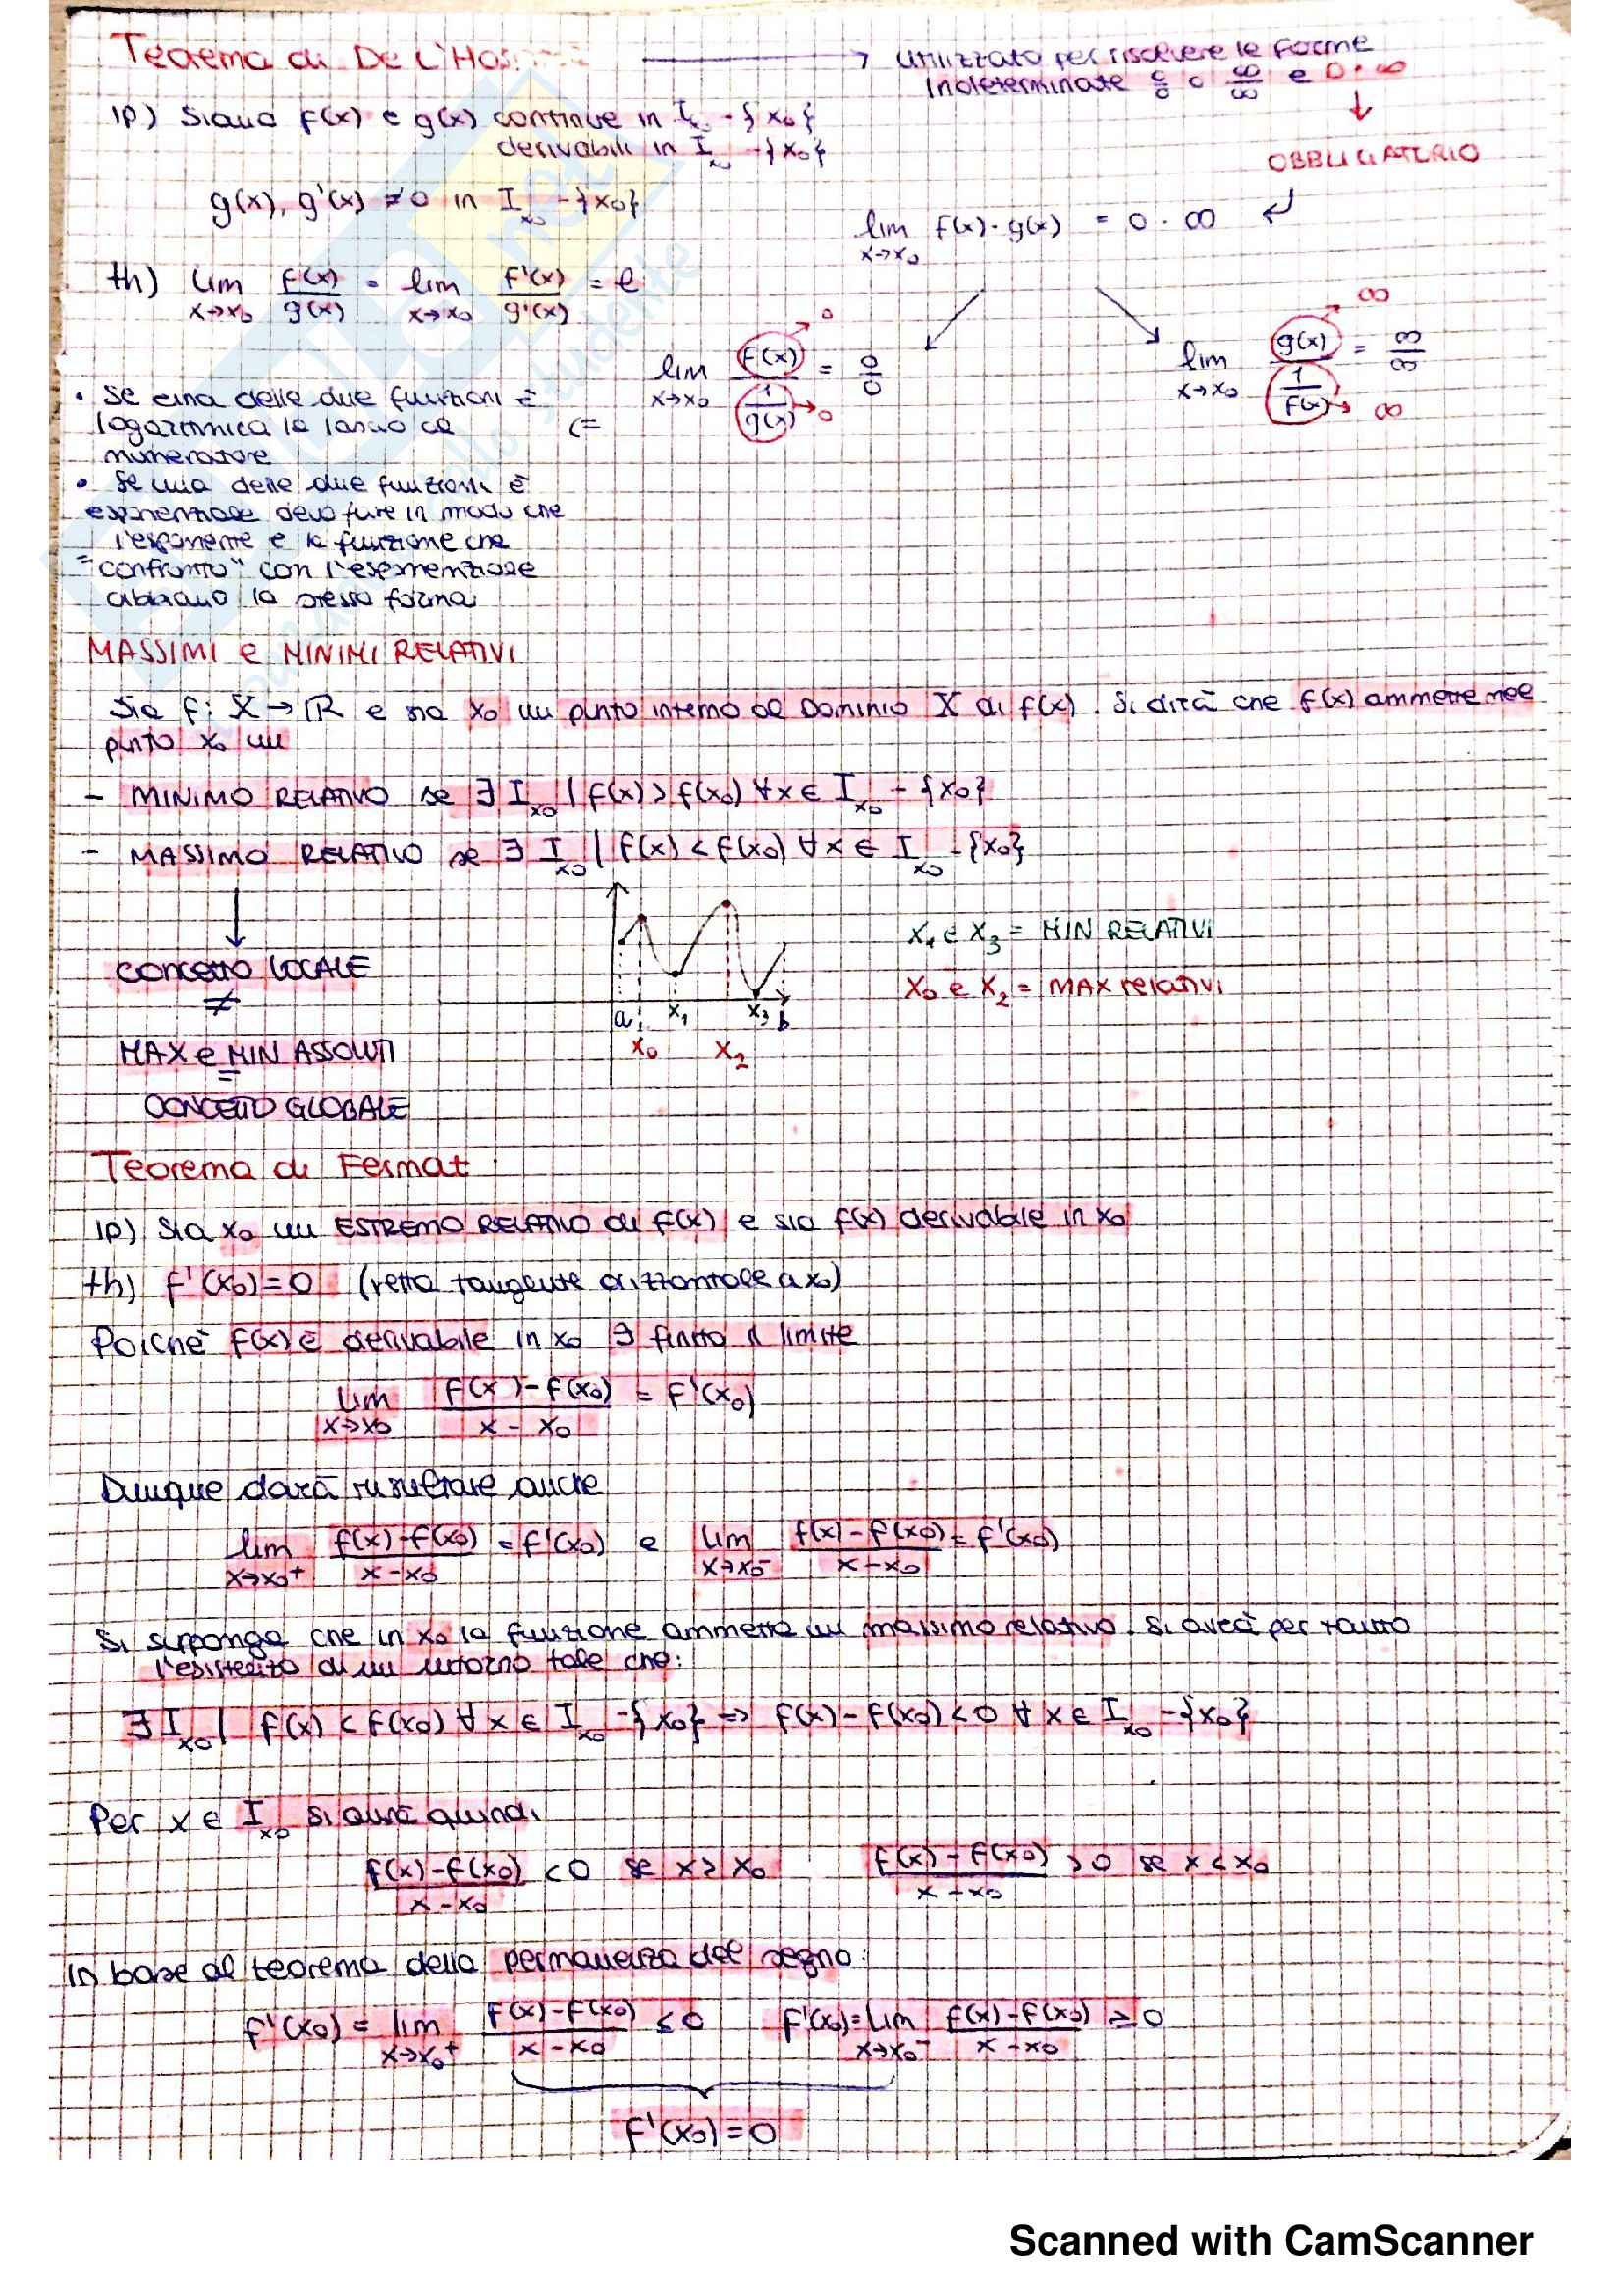 Teorema di De L'Hos → utilizzato per risolvere le forme
Indeterminate 0/0 o ∞/∞ e 0·∞
↓
OBBLIGATORIO
ip) Siano f(x) e g(x) continue in I_x0 - {x0}
derivabili in I_x0 - {x0}
g(x), g'(x) ≠ 0 in I_x0 - {x0}
lim x→x0 f(x)·g(x) = 0·∞
th) lim x→x0 f(x)/g(x) = lim x→x0 f'(x)/g'(x) = l
lim x→x0 f(x)/(1/g(x)) = 0/0
→ 0
→ 0
lim x→x0 g(x)/(1/f(x)) = ∞/∞
→ ∞
→ ∞
• Se una delle due funzioni è
logaritmica la lascio al
numeratore
• Se una delle due funzioni è
esponenziale devo fare in modo che
l'esponente e la funzione che
"confronto" con l'esponenziale
abbiano la stessa forma
MASSIMI e MINIMI RELATIVI
Sia f: X → ℝ e sia x0 un punto interno al Dominio X di f(x). Si dirà che f(x) ammette nel
punto x0 un
- MINIMO RELATIVO se ∃ I_x0 | f(x) > f(x0) ∀x ∈ I_x0 - {x0}
- MASSIMO RELATIVO se ∃ I_x0 | f(x) < f(x0) ∀x ∈ I_x0 - {x0}
↓
CONCETTO LOCALE
≠
MAX e MIN ASSOLUTI
=
CONCETTO GLOBALE
a x1 x3 b
x0 x2
x1 e x3 = MIN RELATIVI
x0 e x2 = MAX relativi
Teorema di Fermat
ip) Sia x0 un ESTREMO RELATIVO di f(x) e sia f(x) derivabile in x0
th) f'(x0)=0 (retta tangente orizzontale a x0)
Poiché f(x) è derivabile in x0 ∃ finito il limite
lim x→x0 (f(x)-f(x0))/(x-x0) = f'(x0)
Dunque dovrà risultare anche
lim x→x0+ (f(x)-f(x0))/(x-x0) = f'(x0) e lim x→x0- (f(x)-f(x0))/(x-x0) = f'(x0)
Si supponga che in x0 la funzione ammetta un massimo relativo. Si avrà per tanto
l'esistenza di un intorno tale che:
∃ I_x0 | f(x) < f(x0) ∀x ∈ I_x0 - {x0} ⇒ f(x) - f(x0) < 0 ∀x ∈ I_x0 - {x0}
Per x ∈ I_x0 si avrà quindi
(f(x)-f(x0))/(x-x0) < 0 se x > x0 (f(x)-f(x0))/(x-x0) > 0 se x < x0
In base al teorema della permanenza del segno:
f'(x0) = lim x→x0+ (f(x)-f(x0))/(x-x0) ≤ 0 f'(x0) = lim x→x0- (f(x)-f(x0))/(x-x0) ≥ 0
f'(x0)=0
Scanned with CamScanner